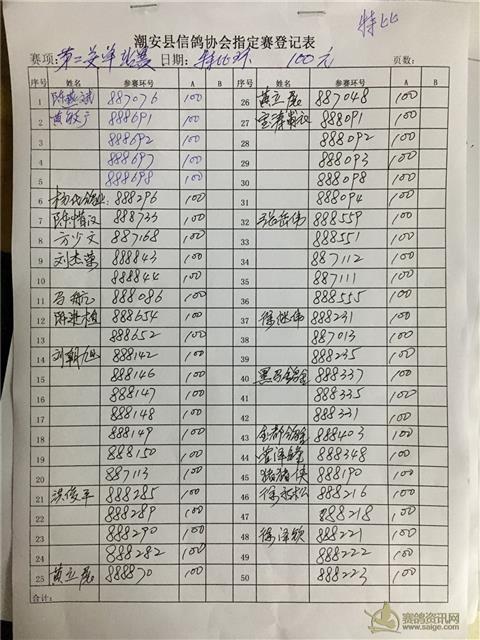 特比
潮安县信鸽协会指定赛登记表
赛项: 第二关单站赛 日期: 特比环 100元 页数:
序号 姓名 参赛环号 A B 序号 姓名 参赛环号 A B
1 陈燕斌 887076 100 26 黄立 887048 100
2 黄 888691 100 27 888091 100
3 888692 100 28 888092 100
4 888697 100 29 888093 100
5 888698 100 30 888098 100
6 888296 100 31 888094 100
7 陈惜汉 888733 100 32 张岳伟 888559 100
8 方少文 887168 100 33 888551 100
9 刘杰荣 888843 100 34 887112 100
10 888844 100 35 887111 100
11 马 888086 100 36 888555 100
12 888654 100 37 徐继伟 888231 100
13 888652 100 38 887013 100
14 刘朝旭 888142 100 39 888235 100
15 888146 100 40 黑马鸽舍 888337 100
16 888147 100 41 888335 100
17 888148 100 42 888331 100
18 888149 100 43 888403 100
19 888150 100 44 888348 100
20 887113 100 45 猪猪侠 888190 100
21 洪俊平 888285 100 46 徐永松 888216 100
22 888289 100 47 888218 100
23 888290 100 48 徐泽 888221 100
24 888282 100 49 888222 100
25 黄立 888870 100 50 888223 100
合计:
赛鸽资讯网
www.saige.com